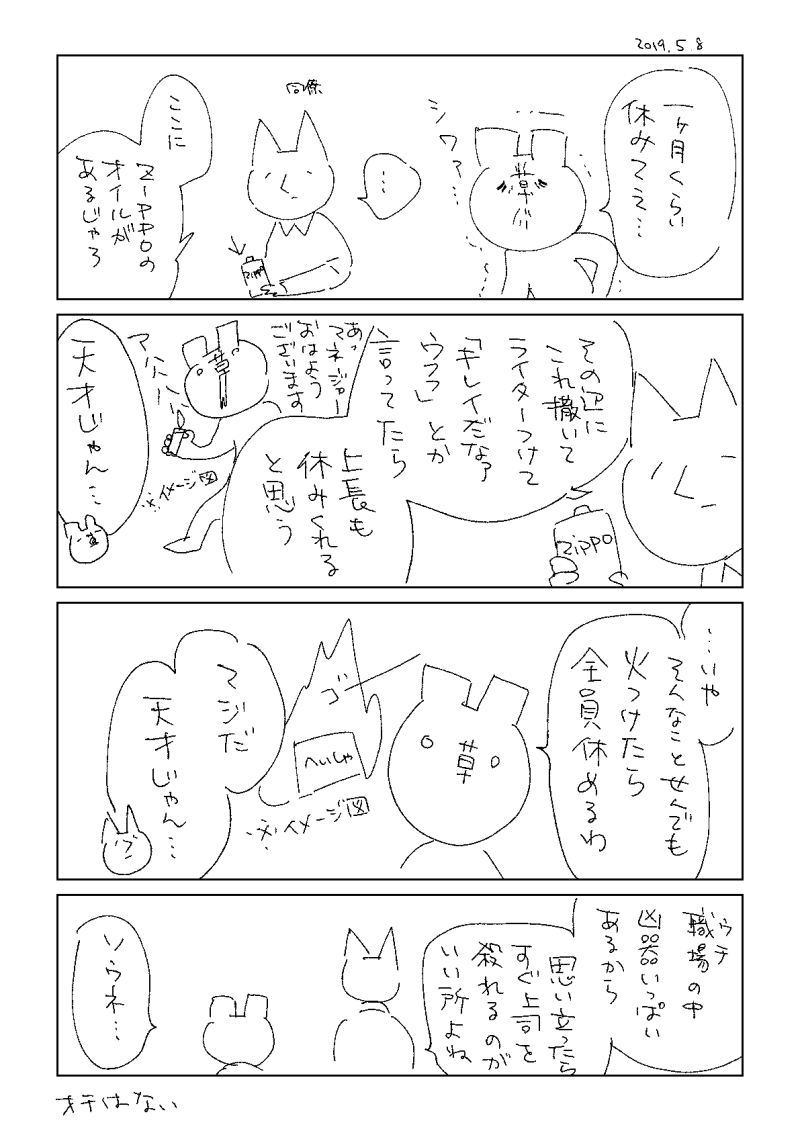 2019.5.8
一ヶ月くらい
休みてえ…
草
シワァ…
…
同僚
zippo
ここに
zippoの
オイルが
あるじゃろ
その辺に
これ撒いて
ライターつけて
「キレイだなァ
ウフフ」とか
言ってたら
上長も
休みくれる
と思う
zippo
あっ
マネジャー
おはよう
ございます
草
アハハハ
※イメージ図
天才じゃん…
草
…いや
そんなことせんでも
火つけたら
全員休めるわ
草
ゴー
へいしゃ
※イメージ図
マジだ
天才じゃん…
ウチ
職場の中
凶器いっぱい
あるから
思い立ったら
すぐ上司を
殺れるのが
いい所よね
ソウネ…
オチはない